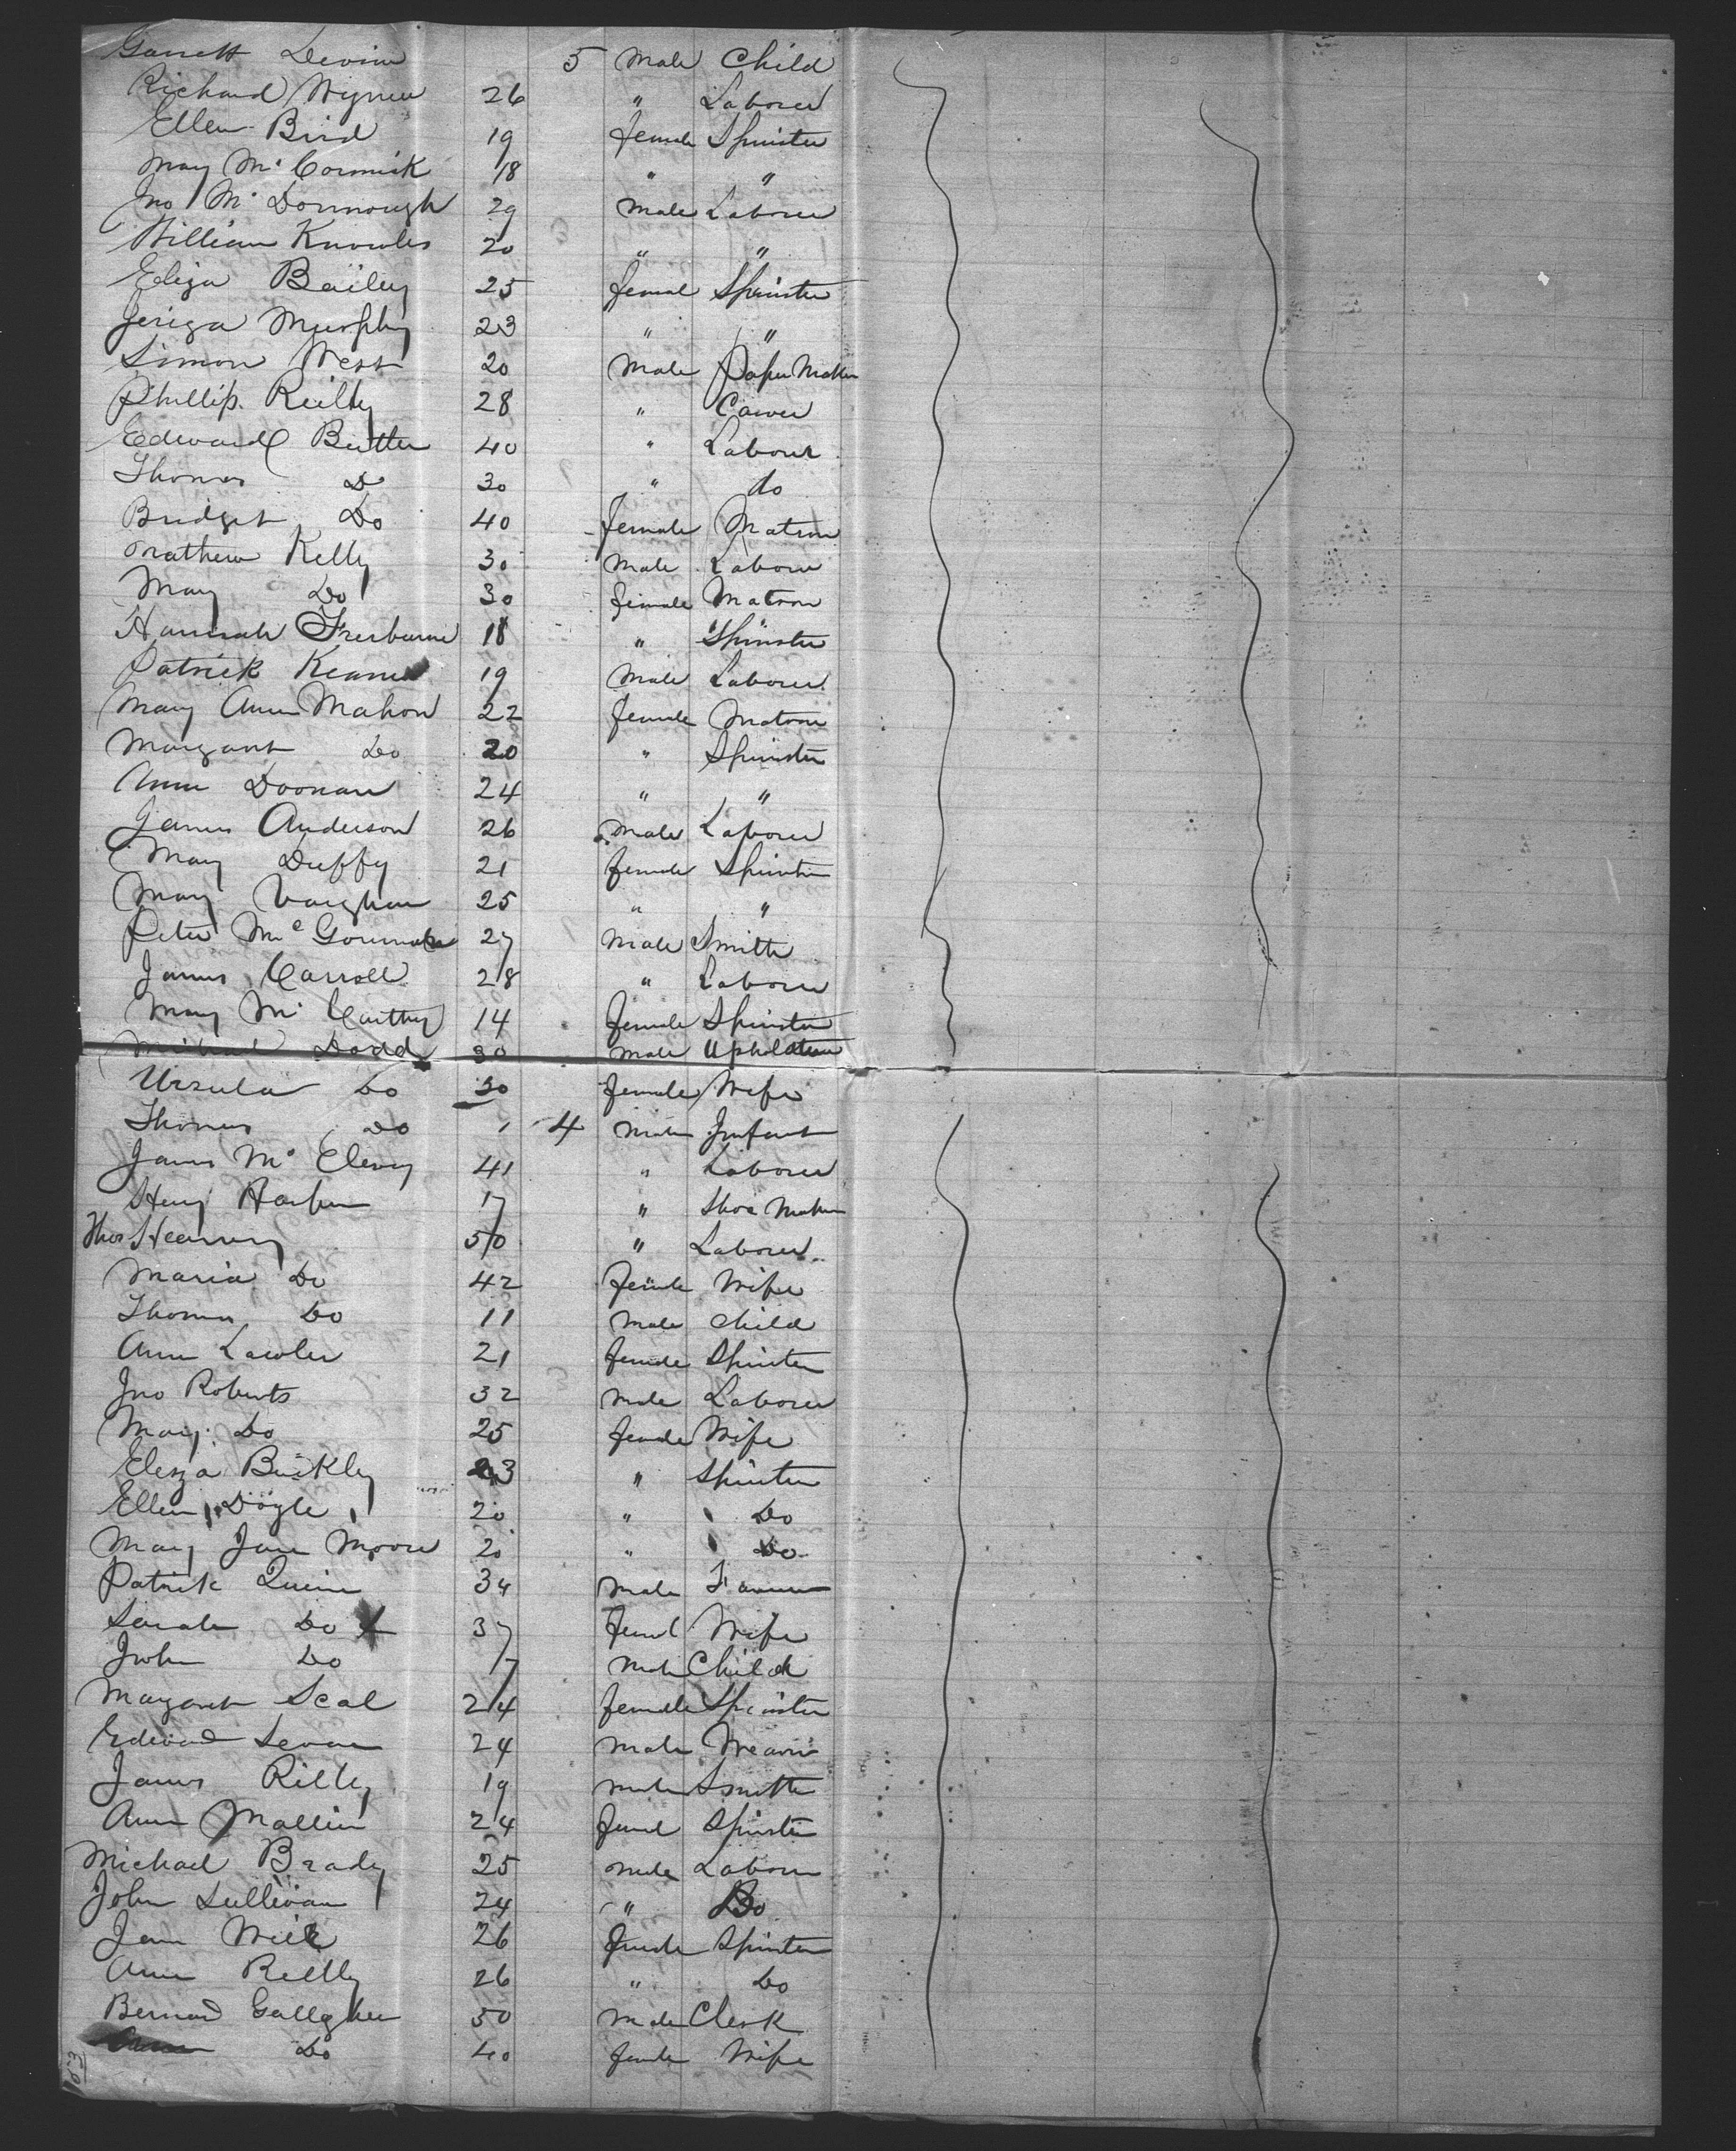 Garrett Devine 5 Male Child
Richard Wynne 26 " Laborer
Ellen Bird 19 female Spinster
Mary Mc Cormick 18 " "
Jno Mc Donnough 29 Male Laborer
William Knowles 20 " "
Eliza Bailey 25 femal Spinster
Jeriza Murphy 23 " "
Simon West 20 Male Paper Maker
Phillip Reilly 28 " Carver
Edward Butler 40 " Labourer
Thomas Do 30 " do
Bridget Do 40 female Matron
Mathew Kelly 30 Male Laborer
Mary Do 30 female Matron
Hannah Freeburne 18 " Spinster
Patrick Keane 19 Male Laborer
Mary Ann Mahon 22 female Matron
Margaret Do 20 " Spinster
Ann Doonan 24 " "
James Anderson 26 Male Laborer
Mary Duffy 21 female Spinster
Mary Vaughan 25 " "
Peter Mc 27 Male Smith
James Carroll 28 " Laborer
Mary Mc Carthy 14 female Spinster
Michael Dodd 30 Male Upholsterer
Ursula Do 30 female Wife
Thomas Do 4 Male Infant
James Mc Elevey 41 " Laborer
Henry Harper 17 " Shoe Maker
Thos Hearney 50 " Laborer
Maria Do 42 female Wife
Thomas Do 11 Male Child
Ann Lawler 21 female Spinster
Jno Roberts 32 Male Laborer
Mary Do 25 female Wife
Eliza Buckley 23 " Spinster
Ellen Doyle 20 " Do
Mary Jane Moore 20 " Do
Patrick Quinn 34 Male Farmer
Sarah Do 37 Feml Wife
John Do 17 Male Child
Margaret Seal 24 female Spinster
Edward 24 Male Weaver
James Rilly 19 Male Smith
Ann Mallin 24 Feml Spinster
Michael Brady 25 Male Laborer
John Sullivan 24 " Do
Jane Weir 26 female Spinster
Ann Reilly 26 " Do
Bernard Gallagher 50 Male Clerk
Do 40 female Wife